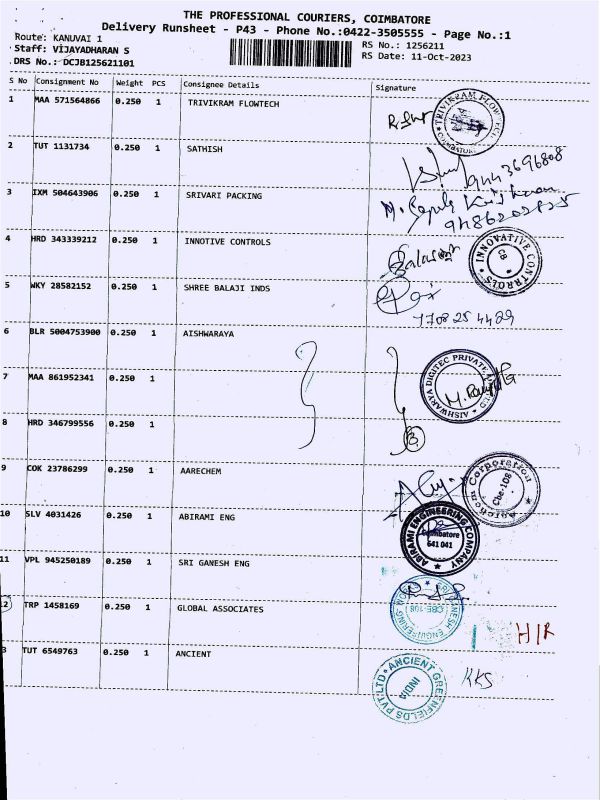 THE PROFESSIONAL COURIERS, COIMBATORE
Delivery Runsheet - P43 - Phone No.:0422-3505555 - Page No.:1
Route: KANUVAI 1
RS No.: 1256211
Staff: VIJAYADHARAN S
RS Date: 11-Oct-2023
DRS No.: DCJB125621101
S No Consignment No Weight PCS Consignee Details Signature
1 MAA 571564866 0.250 1 TRIVIKRAM FLOWTECH
TRIVIKRAM FLOW
2 TUT 1131734 0.250 1 SATHISH
9443696808
3 IXM 504643906 0.250 1 SRIVARI PACKING
4 HRD 343339212 0.250 1 INNOTIVE CONTROLS
INNOVATIVE CONTROLS CB
5 WKY 28582152 0.250 1 SHREE BALAJI INDS
770825 4429
6 BLR 5004753900 0.250 1 AISHWARAYA
AISHWARYA DIGITEC PRIVATE
7 MAA 861952341 0.250 1
8 HRD 346799556 0.250 1
3
9 COK 23786299 0.250 1 AARECHEM
Corporation Cbe-108
10 SLV 4031426 0.250 1 ABIRAMI ENG
ABIRAMI ENGINEERING COMPANY Coimbatore 641 041
11 VPL 945250189 0.250 1 SRI GANESH ENG
GANESH ENGINEERING CBE-108
12 TRP 1458169 0.250 1 GLOBAL ASSOCIATES
HIR
3 TUT 6549763 0.250 1 ANCIENT
ANCIENT GREENFIELDS PVT LTD INDIA
KKS